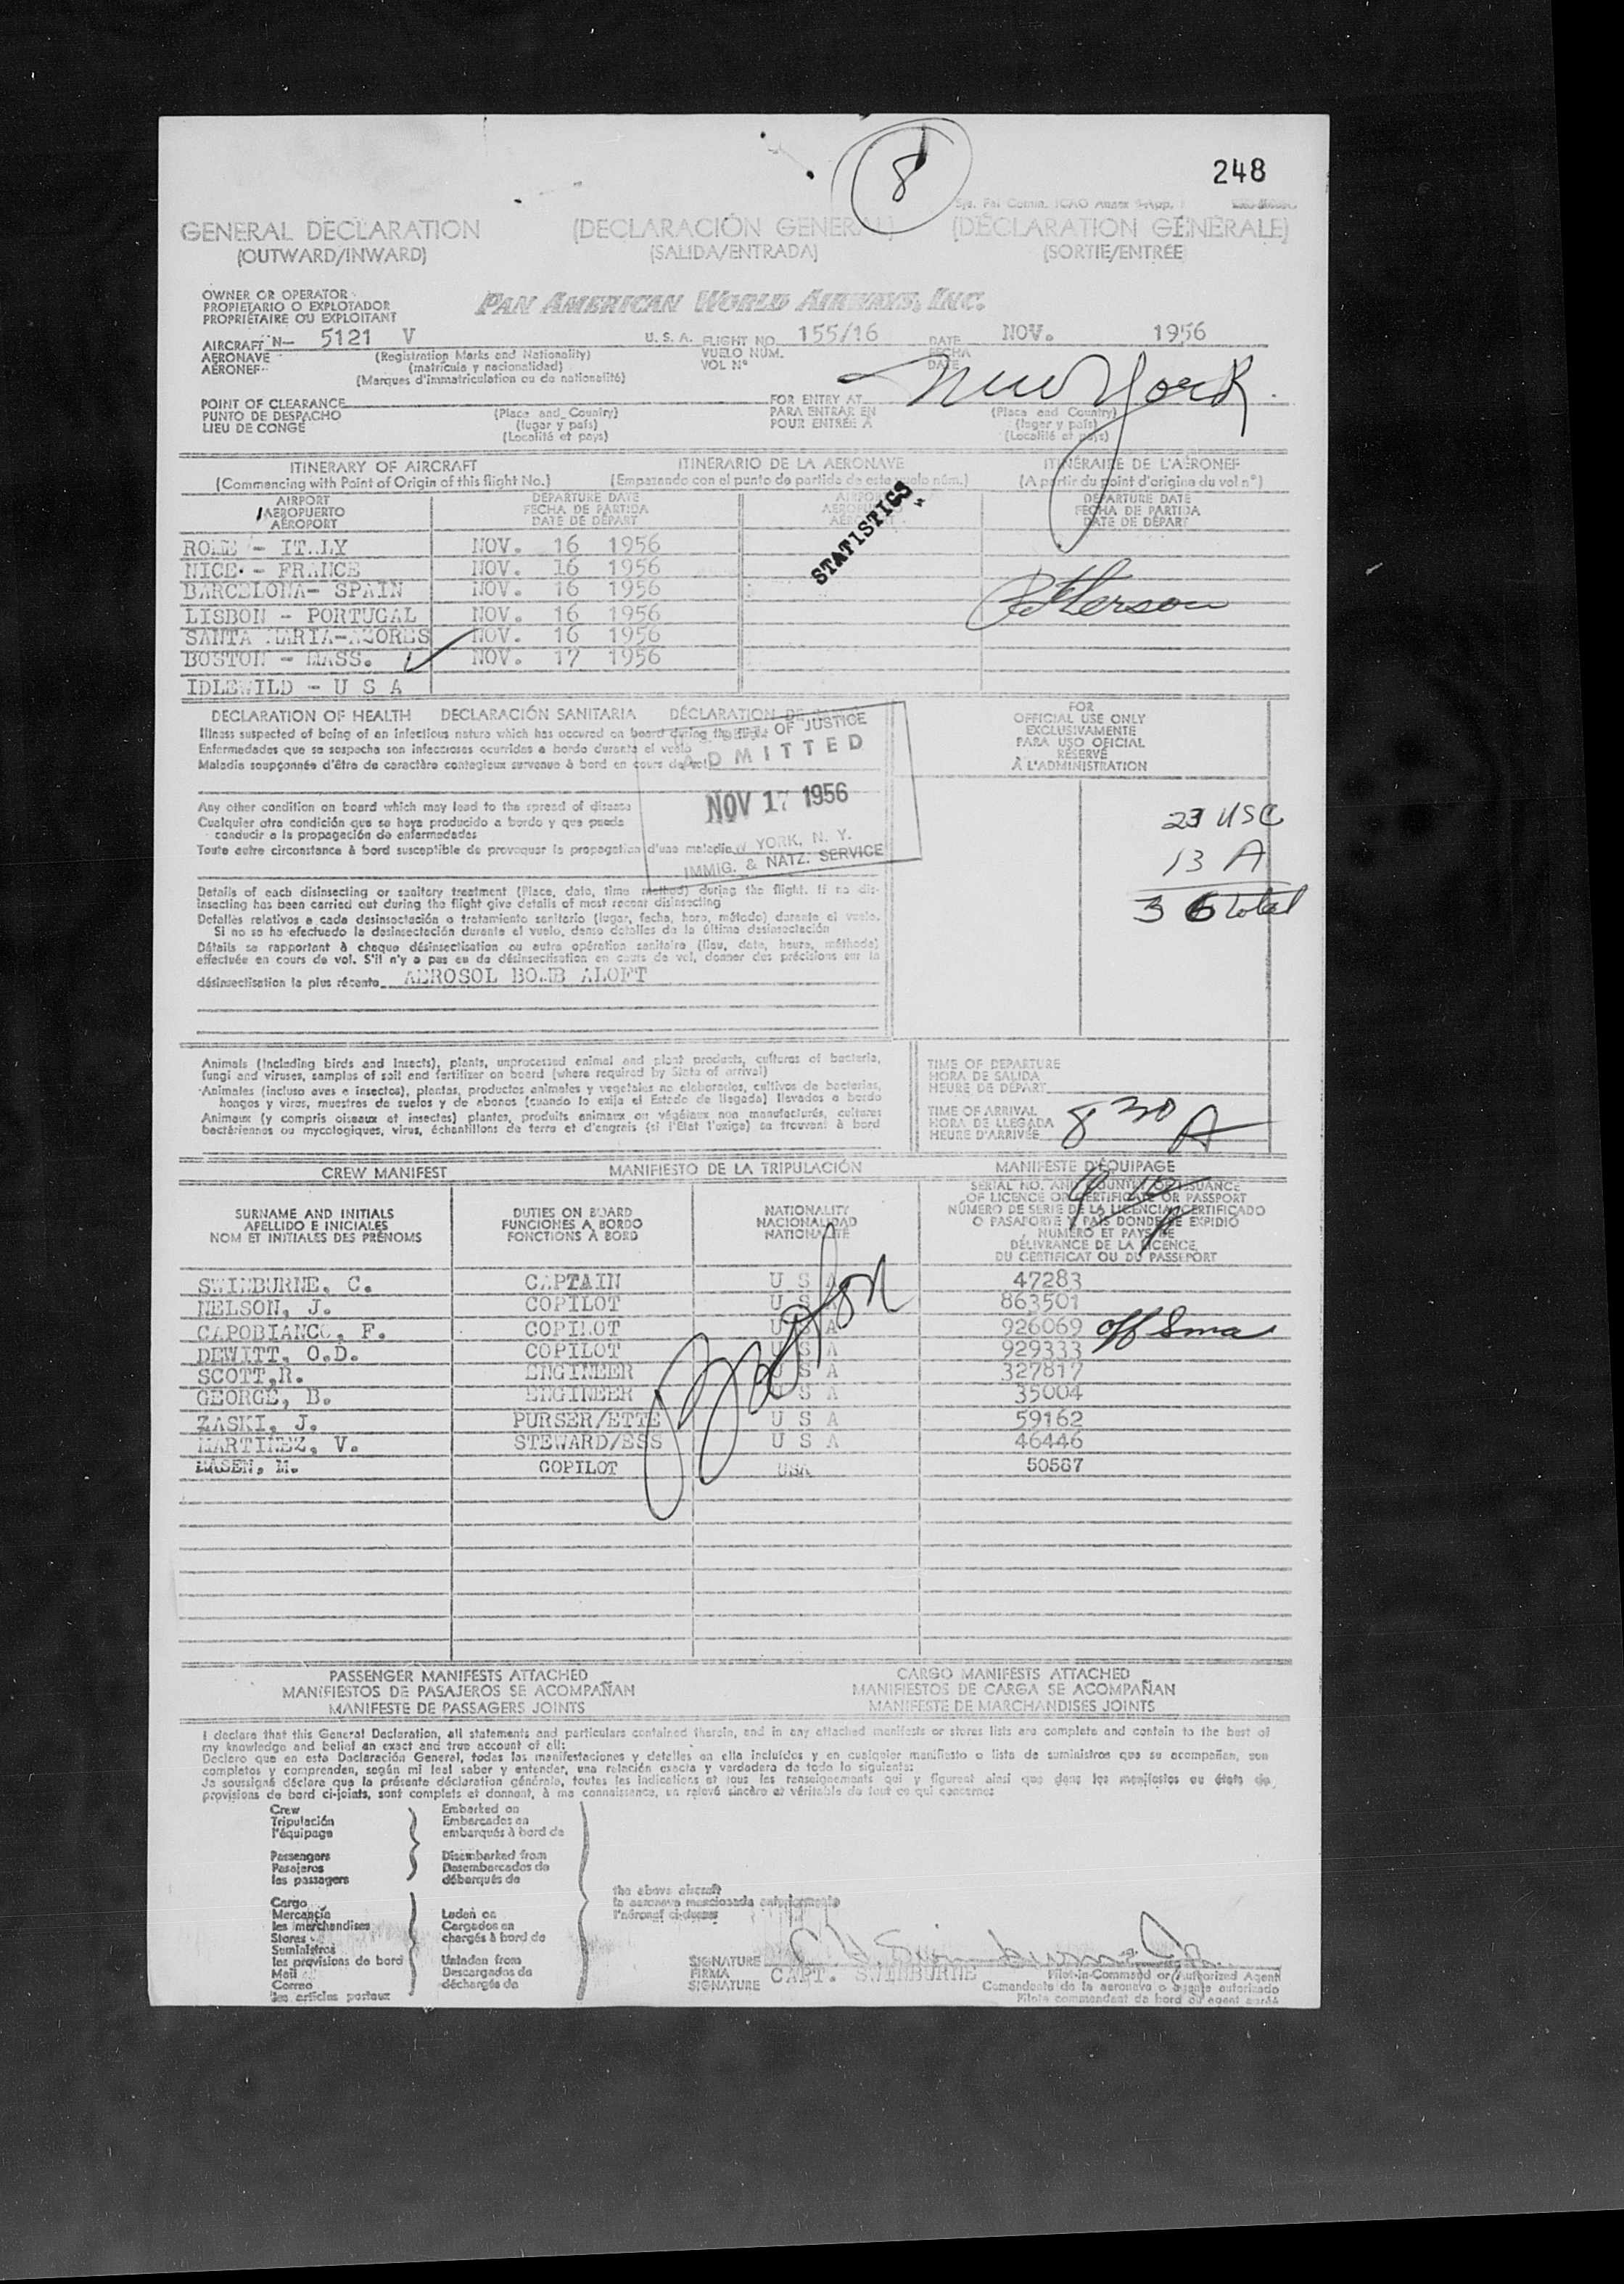 8
248
GENERAL DECLARATION (DECLARACIÓN GENERAL) (DÉCLARATION GÉNÉRALE)
(OUTWARD/INWARD) (SALIDA/ENTRADA) (SORTIE/ENTRÉE)
OWNER OR OPERATOR
PROPIETARIO O EXPLOTADOR
PROPRIÉTAIRE OU EXPLOITANT
PAN AMERICAN WORLD AIRWAYS, INC.
AIRCRAFT N— 5121 V U. S. A. FLIGHT NO. 155/16 DATE NOV. 1956
AERONAVE (Registration Marks and Nationality) VUELO NÚM. FECHA
AÉRONEF (matrícula y nacionalidad) VOL Nº DATE
(Marques d'immatriculation ou de nationalité)
New York
POINT OF CLEARANCE FOR ENTRY AT
PUNTO DE DESPACHO (Place and Country) PARA ENTRAR EN (Place and Country)
LIEU DE CONGÉ (lugar y país) POUR ENTRÉE À (lugar y país)
(Localité et pays) (Localité et pays)
ITINERARY OF AIRCRAFT ITINERARIO DE LA AERONAVE ITINÉRAIRE DE L'AÉRONEF
(Commencing with Point of Origin of this flight No.) (Empezando con el punto de partida de este vuelo núm.) (A partir du point d'origine du vol nº)
AIRPORT DEPARTURE DATE AIRPORT DEPARTURE DATE
AEROPUERTO FECHA DE PARTIDA AEROPUERTO FECHA DE PARTIDA
AÉROPORT DATE DE DÉPART AÉROPORT DATE DE DÉPART
STATISTICS
ROME - ITALY NOV. 16 1956
NICE - FRANCE NOV. 16 1956
BARCELONA- SPAIN NOV. 16 1956
LISBON - PORTUGAL NOV. 16 1956
SANTA MARIA-AZORES NOV. 16 1956
BOSTON - MASS. NOV. 17 1956
IDLEWILD - U S A
DECLARATION OF HEALTH DECLARACIÓN SANITARIA DÉCLARATION DE
Illness suspected of being of an infectious nature which has occured on board during the flight
Enfermedades que se sospecha son infecciosas ocurridas a bordo durante el vuelo
Maladie soupçonnée d'être de caractère contagieux survenue à bord en cours de vol
OF JUSTICE
ADMITTED
NOV 17 1956
YORK, N. Y.
IMMIG. & NATZ. SERVICE
FOR
OFFICIAL USE ONLY
EXCLUSIVAMENTE
PARA USO OFICIAL
RÉSERVÉ
À L'ADMINISTRATION
23 USC
13 A
36 total
Any other condition on board which may lead to the spread of disease
Cualquier otra condición que se haya producido a bordo y que pueda
conducir a la propagación de enfermedades
Toute autre circonstance à bord susceptible de provoquer la propagation d'une maladie
Details of each disinsecting or sanitary treatment (Place, date, time method) during the flight. If no dis-
insecting has been carried out during the flight give details of most recent disinsecting
Detalles relativos a cada desinsectación o tratamiento sanitario (lugar, fecha, hora, método) durante el vuelo.
Si no se ha efectuado la desinsectación durante el vuelo, dense detalles de la última desinsectación
Détails se rapportant à chaque désinsectisation ou autre opération sanitaire (lieu, date, heure, méthode)
effectuée en cours de vol. S'il n'y a pas eu de désinsectisation en cours de vol, donner des précisions sur la
désinsectisation la plus récente AEROSOL BOMB ALOFT
Animals (including birds and insects), plants, unprocessed animal and plant products, cultures of bacteria,
fungi and viruses, samples of soil and fertilizer on board (where required by State of arrival)
Animales (incluso aves e insectos), plantas, productos animales y vegetales no elaborados, cultivos de bacterias,
hongos y virus, muestras de suelos y de abonos (cuando lo exija el Estado de llegada) llevados a bordo
Animaux (y compris oiseaux et insectes) plantes, produits animaux ou végétaux non manufacturés, cultures
bactériennes ou mycologiques, virus, échantillons de terre et d'engrais (si l'État l'exige) se trouvant à bord
TIME OF DEPARTURE
HORA DE SALIDA
HEURE DE DÉPART
TIME OF ARRIVAL
HORA DE LLEGADA
HEURE D'ARRIVÉE
8 30 A
CREW MANIFEST MANIFIESTO DE LA TRIPULACIÓN MANIFESTE D'ÉQUIPAGE
SURNAME AND INITIALS
APELLIDO E INICIALES
NOM ET INITIALES DES PRÉNOMS
DUTIES ON BOARD
FUNCIONES A BORDO
FONCTIONS À BORD
NATIONALITY
NACIONALIDAD
NATIONALITÉ
SERIAL NO. AND COUNTRY OF ISSUANCE
OF LICENCE OR CERTIFICATE OR PASSPORT
NÚMERO DE SERIE DE LA LICENCIA, CERTIFICADO
O PASAPORTE Y PAÍS DONDE SE EXPIDIÓ
NUMÉRO ET PAYS DE
DÉLIVRANCE DE LA LICENCE
DU CERTIFICAT OU DU PASSEPORT
SWINBURNE, C. CAPTAIN U S A 47283
NELSON, J. COPILOT U S A 863501
CAPOBIANCO, F. COPILOT U S A 926069 off Sma
DEWITT, O.D. COPILOT U S A 929333
SCOTT, R. ENGINEER U S A 327817
GEORGE, B. ENGINEER U S A 35004
ZASKI, J. PURSER/ETTE U S A 59162
MARTINEZ, V. STEWARD/ESS U S A 46446
MASEN, M. COPILOT USA 50587
PASSENGER MANIFESTS ATTACHED CARGO MANIFESTS ATTACHED
MANIFIESTOS DE PASAJEROS SE ACOMPAÑAN MANIFIESTOS DE CARGA SE ACOMPAÑAN
MANIFESTE DE PASSAGERS JOINTS MANIFESTE DE MARCHANDISES JOINTS
I declare that this General Declaration, all statements and particulars contained therein, and in any attached manifests or stores lists are complete and contain to the best of
my knowledge and belief an exact and true account of all:
Declaro que en esta Declaración General, todas las manifestaciones y detalles en ella incluídos y en cualquier manifiesto o lista de suministros que se acompañen, son
completos y comprenden, según mi leal saber y entender, una relación exacta y verdadera de todo lo siguiente:
Je soussigné déclare que la présente déclaration générale, toutes les indications et tous les renseignements qui y figurent ainsi que dans les manifestes ou états de
provisions de bord ci-joints, sont complets et donnent, à ma connaissance, un relevé sincère et véritable de tout ce qui concerne:
Crew Embarked on
Tripulación Embarcados en
l'équipage embarqués à bord de
Passengers Disembarked from
Pasajeros Desembarcados de
les passagers débarqués de
Cargo
Mercancía Laden on
les marchandises Cargados en
Stores chargés à bord de
Suministros
les provisions de bord Unladen from
Mail Descargados de
Correo déchargés de
les articles postaux
the above aircraft
la aeronave mencionada anteriormente
l'aéronef ci-dessus
SIGNATURE
FIRMA CAPT. SWINBURNE
SIGNATURE
Pilot-in-Command or Authorized Agent
Comandante de la aeronave o agente autorizado
Pilote commandant de bord ou agent agréé